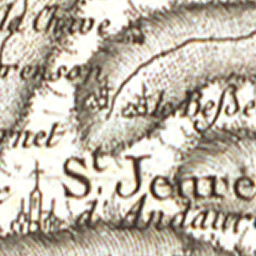 la Chave
renson
la Beſſe
net
St. Jeure
d'Andaure